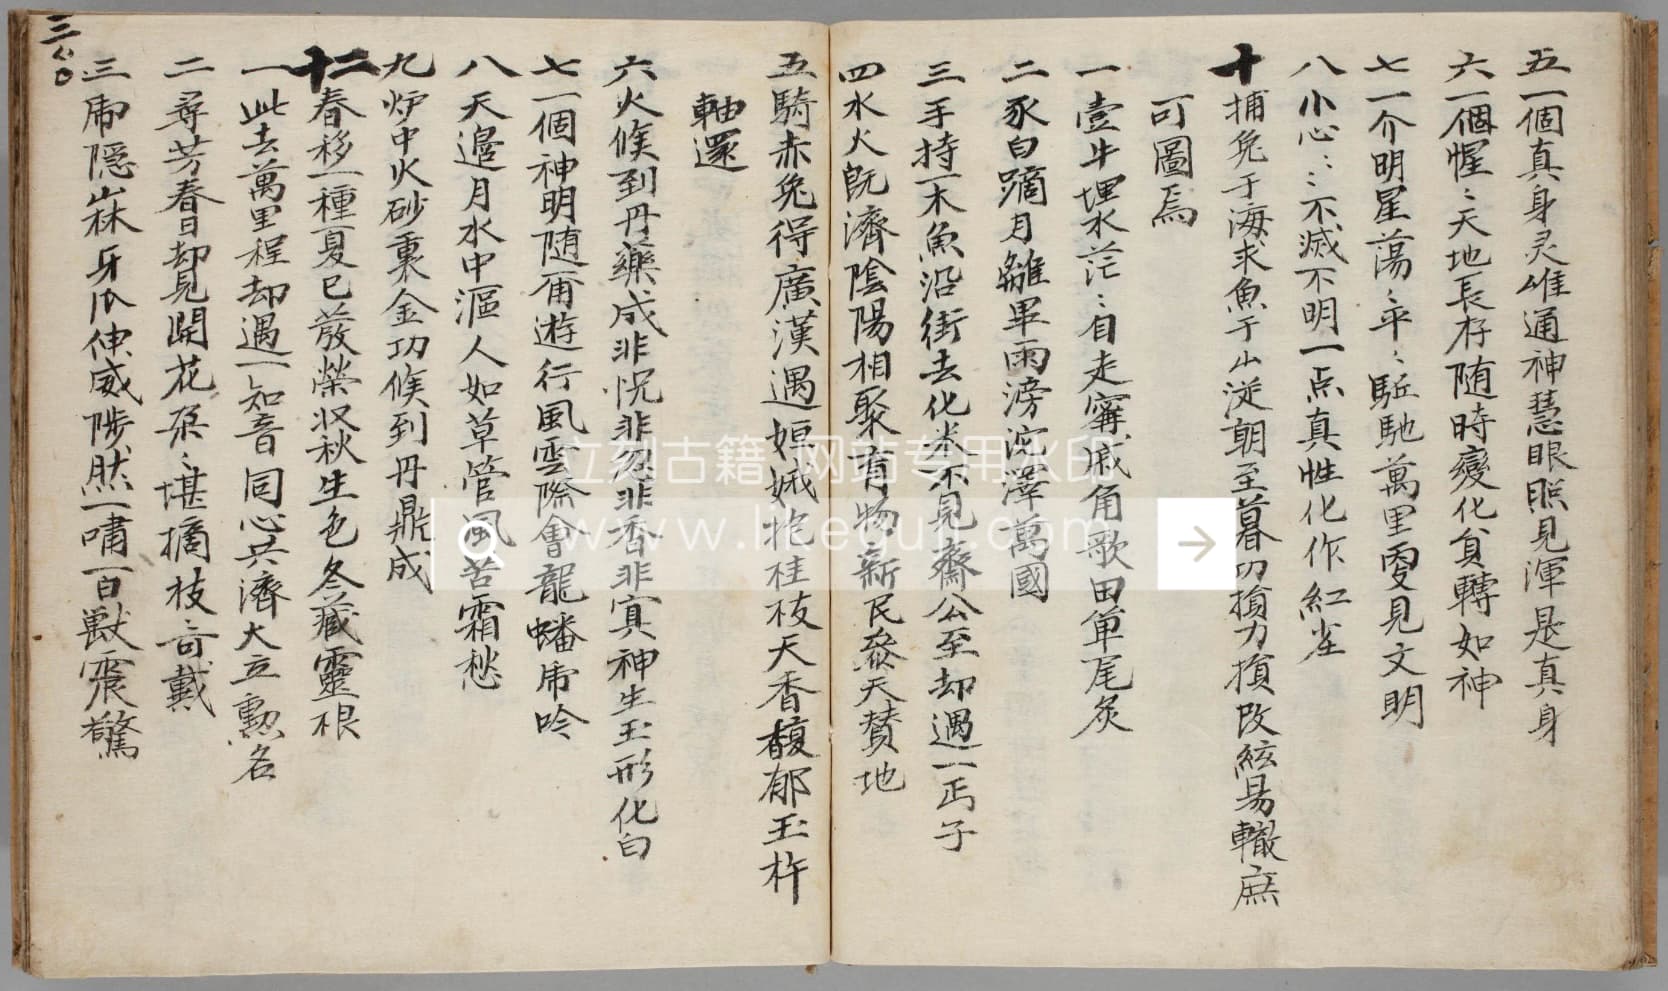 五一個真身灵雄通神慧眼照見渾是真身
六一個惺〻天地長存随時變化負轉如神
七一介明星蕩〻平〻駈馳萬里雯見文明
八小心〻〻不滅不明一点真性化作紅雀
十捕兔于海求魚于山從朝至暮功損力損改絃易轍庶
可圖焉
一壹牛埋水茫〻自走甯戚角歌田单尾炙
二豕白蹢月離畢雨滂沱澤萬國
三手持一木魚沿街去化米不見齋公至却遇一丐子
四水火既濟陰陽相聚育物新民叅天贊地
五騎赤兔得廣漢遇婥娥指桂枝天香馥郁玉杵
軸還
六火候到丹藥成非怳非忽非香非寘神生玉形化白
七一個神明随甭遊行風雲際會龍蟠虎吟
八天邉月水中漚人如草管風苦霜愁
九炉中火砂裏金功候到丹鼎成
十二春移一種夏已發榮収秋生色冬藏靈根
一此去萬里程却遇一知音同心共濟大立勲名
二尋芳春日却見開花朶〻堪摘枝〻奇戴
三虎隱山林牙爪伸威陟然一嘯百獸震驚
三
立刻古籍 网站专用水印
www.likeguji.com